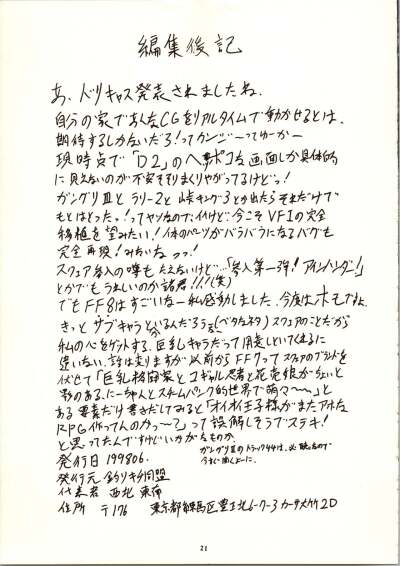 編集後記
あ、ドリキャス発表されましたね。
自分の家であんなCGをリアルタイムで動かせるとは、
期待するしかないだろ!ってカンジーってゆーかー
現時点で「D2」のヘッポコな画面しか具体的
に見えないのが不安をそりまくりやがってるけどっ!
ガングリフⅡとラリー2と峠キング3とか出たらそれだけで
もとはとった。!ってヤツなので、イイけど、今こそVF1の完全
移植を望みたい!人体のパーツがバラバラになるバグも
完全再現!みたいなっっ!
スクェア参入の噂もたえないけど…「参入第一弾!アインハンダー!」
とかでもうれしいのか諸君!!!(笑)
でもFF8はすごいなー私感動しました。今度はホモですよ、
きっと サブキャラといるんだろうな(ベタなネタ)スクェアのことだから
私の心をゲットする、巨乳キャラだって用意していてくるに
違いない。話は変りますが以前からFF7ってスクェアのブランドを
伏せて「巨乳格闘家とコギャル忍者と花売娘がちょいと
影のある、にーちゃんとスチームパンク的世界で萌々〜〜」と
ある要素だけ書きだしてみると「オイオイ王子様がまたアホな
RPG作ってんのかっ〜て」って誤解しそうでステキ!
と思ってたんですけどいかがなものか。
ガングリフⅡのトラック44は、必聴なので
今すぐ聞くよーに。
発行日 199806.
発行元 釣りキチ同盟
代表者 西北東南
住所 〒176 東京都練馬区豊玉北6-7-3カーサ大竹2D
21